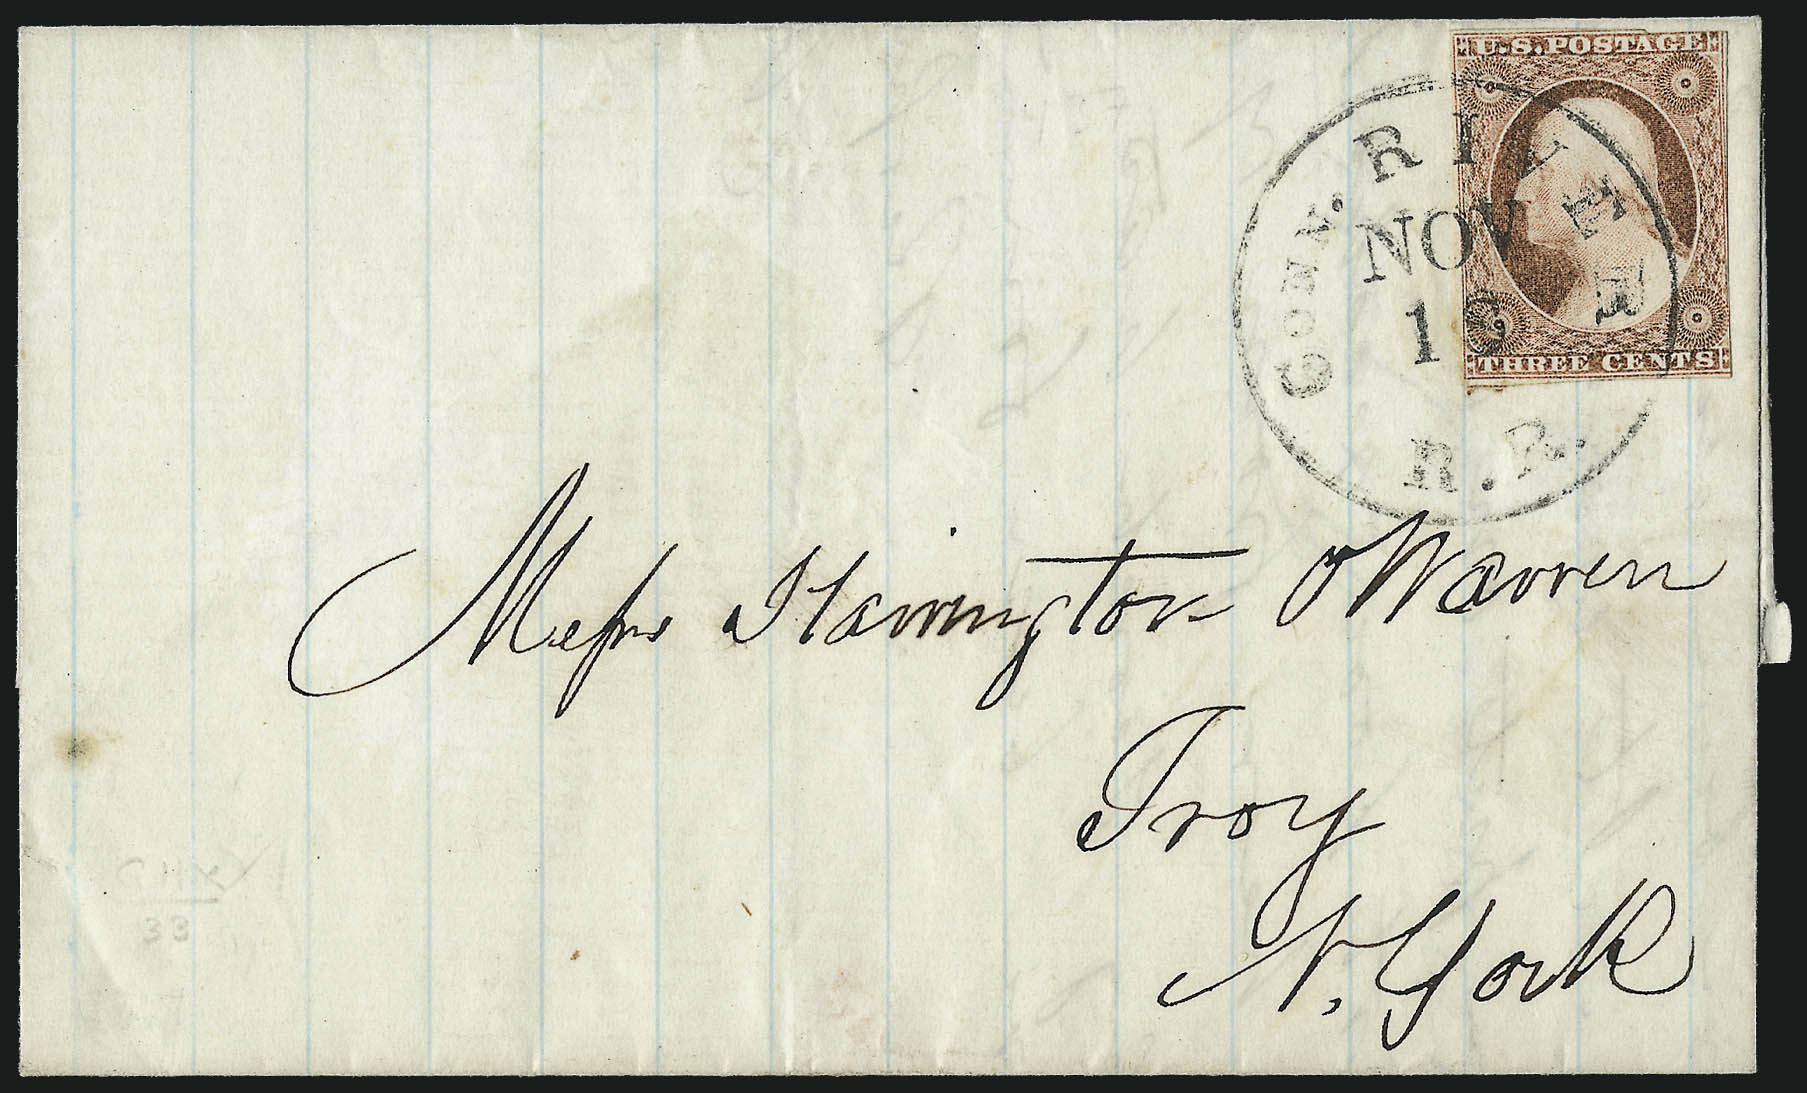 U.S. POSTAGE
THREE CENTS
CONN. RIVER
NOV
16
R.R.
Mess Harrington & Warren
Troy
N. York
33